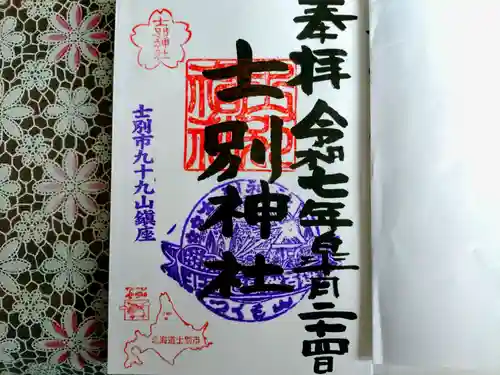 奉拝 令和七年 月二十四日
士別神社
士別神社
士別市九十九山鎮座
つくも山
北海道士別市